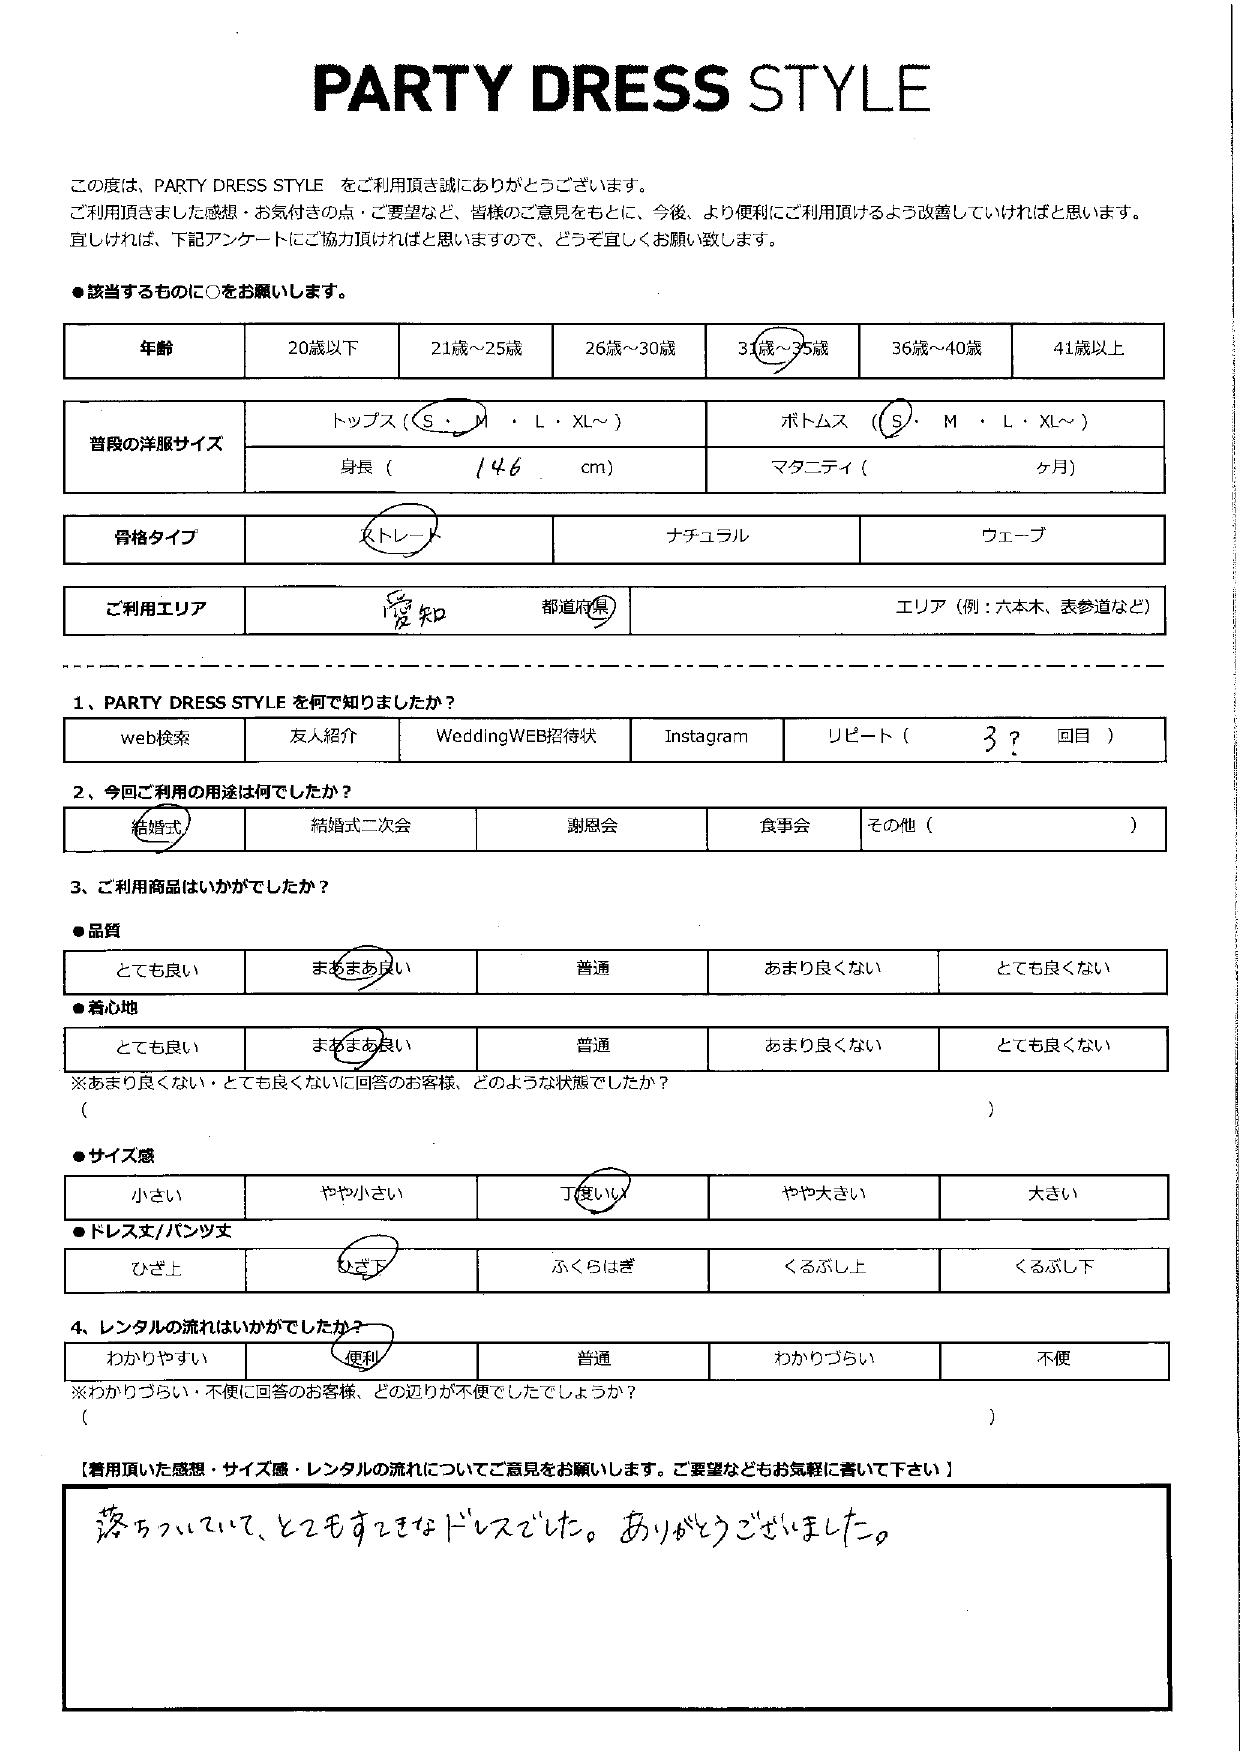 PARTY DRESS STYLE
この度は、PARTY DRESS STYLE　をご利用頂き誠にありがとうございます。
ご利用頂きました感想・お気付きの点・ご要望など、皆様のご意見をもとに、今後、より便利にご利用頂けるよう改善していければと思います。
宜しければ、下記アンケートにご協力頂ければと思いますので、どうぞ宜しくお願い致します。
●該当するものに○をお願いします。
年齢 20歳以下 21歳～25歳 26歳～30歳 31歳～35歳 36歳～40歳 41歳以上
普段の洋服サイズ トップス (S ・ M ・ L ・ XL～ ) ボトムス (S ・ M ・ L ・ XL～ )
身長 ( 146 cm) マタニティ ( ヶ月)
骨格タイプ ストレート ナチュラル ウェーブ
ご利用エリア 愛知 都道府県 エリア（例：六本木、表参道など）
1、PARTY DRESS STYLE を何で知りましたか？
web検索 友人紹介 WeddingWEB招待状 Instagram リピート ( 3? 回目 )
2、今回ご利用の用途は何でしたか？
結婚式 結婚式二次会 謝恩会 食事会 その他 ( )
3、ご利用商品はいかがでしたか？
●品質
とても良い まあまあ良い 普通 あまり良くない とても良くない
●着心地
とても良い まあまあ良い 普通 あまり良くない とても良くない
※あまり良くない・とても良くないに回答のお客様、どのような状態でしたか？
( )
●サイズ感
小さい やや小さい 丁度いい やや大きい 大きい
●ドレス丈/パンツ丈
ひざ上 ひざ下 ふくらはぎ くるぶし上 くるぶし下
4、レンタルの流れはいかがでしたか？
わかりやすい 便利 普通 わかりづらい 不便
※わかりづらい・不便に回答のお客様、どの辺りが不便でしたでしょうか？
( )
【着用頂いた感想・サイズ感・レンタルの流れについてご意見をお願いします。ご要望などもお気軽に書いて下さい】
落ちついていて、とてもすてきなドレスでした。ありがとうございました。